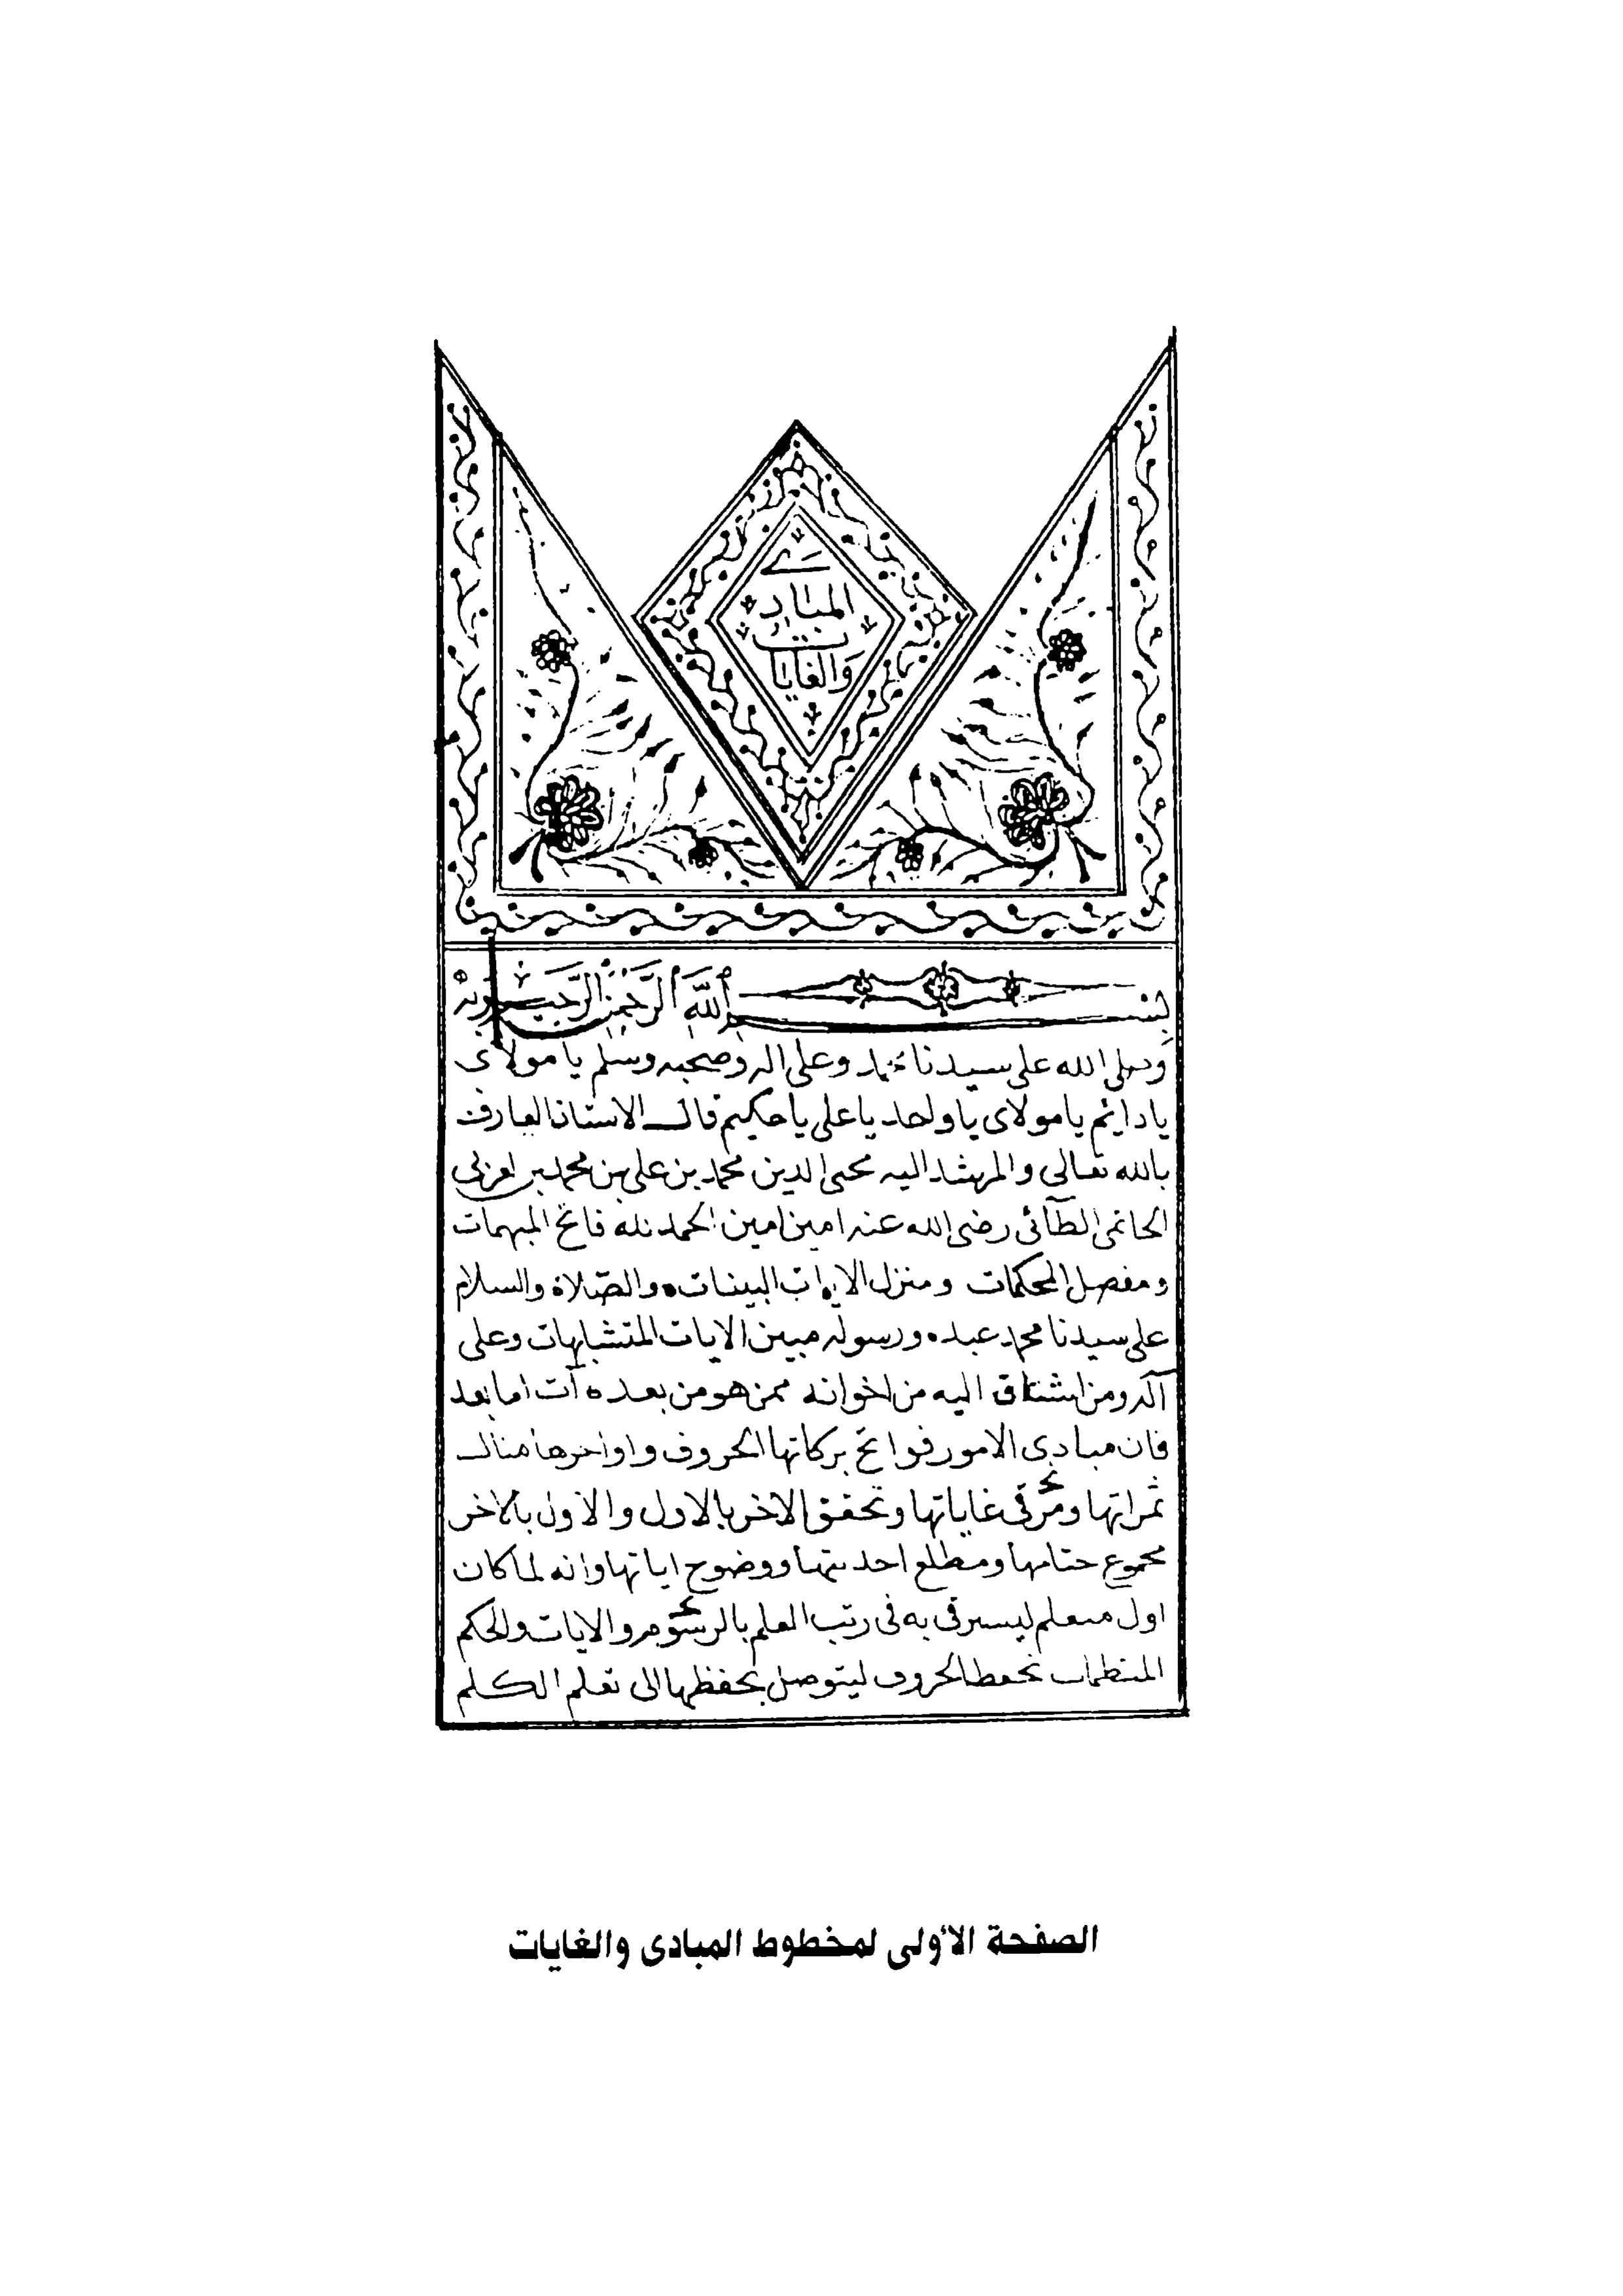 المبادى
والغايات
بسم الله الرحمن الرحيم وبه
وصلى الله على سيدنا محمد وعلى اله وصحبه وسلم يا مولاى
يا دايم يا مولاى يا واحد يا على يا حكيم قال الاستاذ العارف
بالله تعالى والمرشد اليه محيى الدين محمد بن على بن محمد بن العربى
الحاتمى الطآئى رضى الله عنه امين امين الحمد لله فاتح المبهمات
ومفصل المحكمات ومنزل الايات البينات والصلاة والسلام
على سيدنا محمد عبده ورسوله مبين الايات المتشابهات وعلى
آله ومن اشتاق اليه من اخوانه ممن هو من بعده آت اما بعد
فان مبادى الامور فواتح بركاتها الحروف واواخرها منال
ثمراتها وترقى غاياتها وتحقق الاخر بالاول والاول بالاخر
مجموع ختامها ومطلع احديتها ووضوح اياتها وانه لما كان
اول متعلم ليسترقى به فى رتب العلم بالرسوم والايات والحكم
المنتظمات تحفظ الحروف ليتوصل بحفظها الى تعلم الكلم
الصفحة الأولى لمخطوط المبادى والغايات